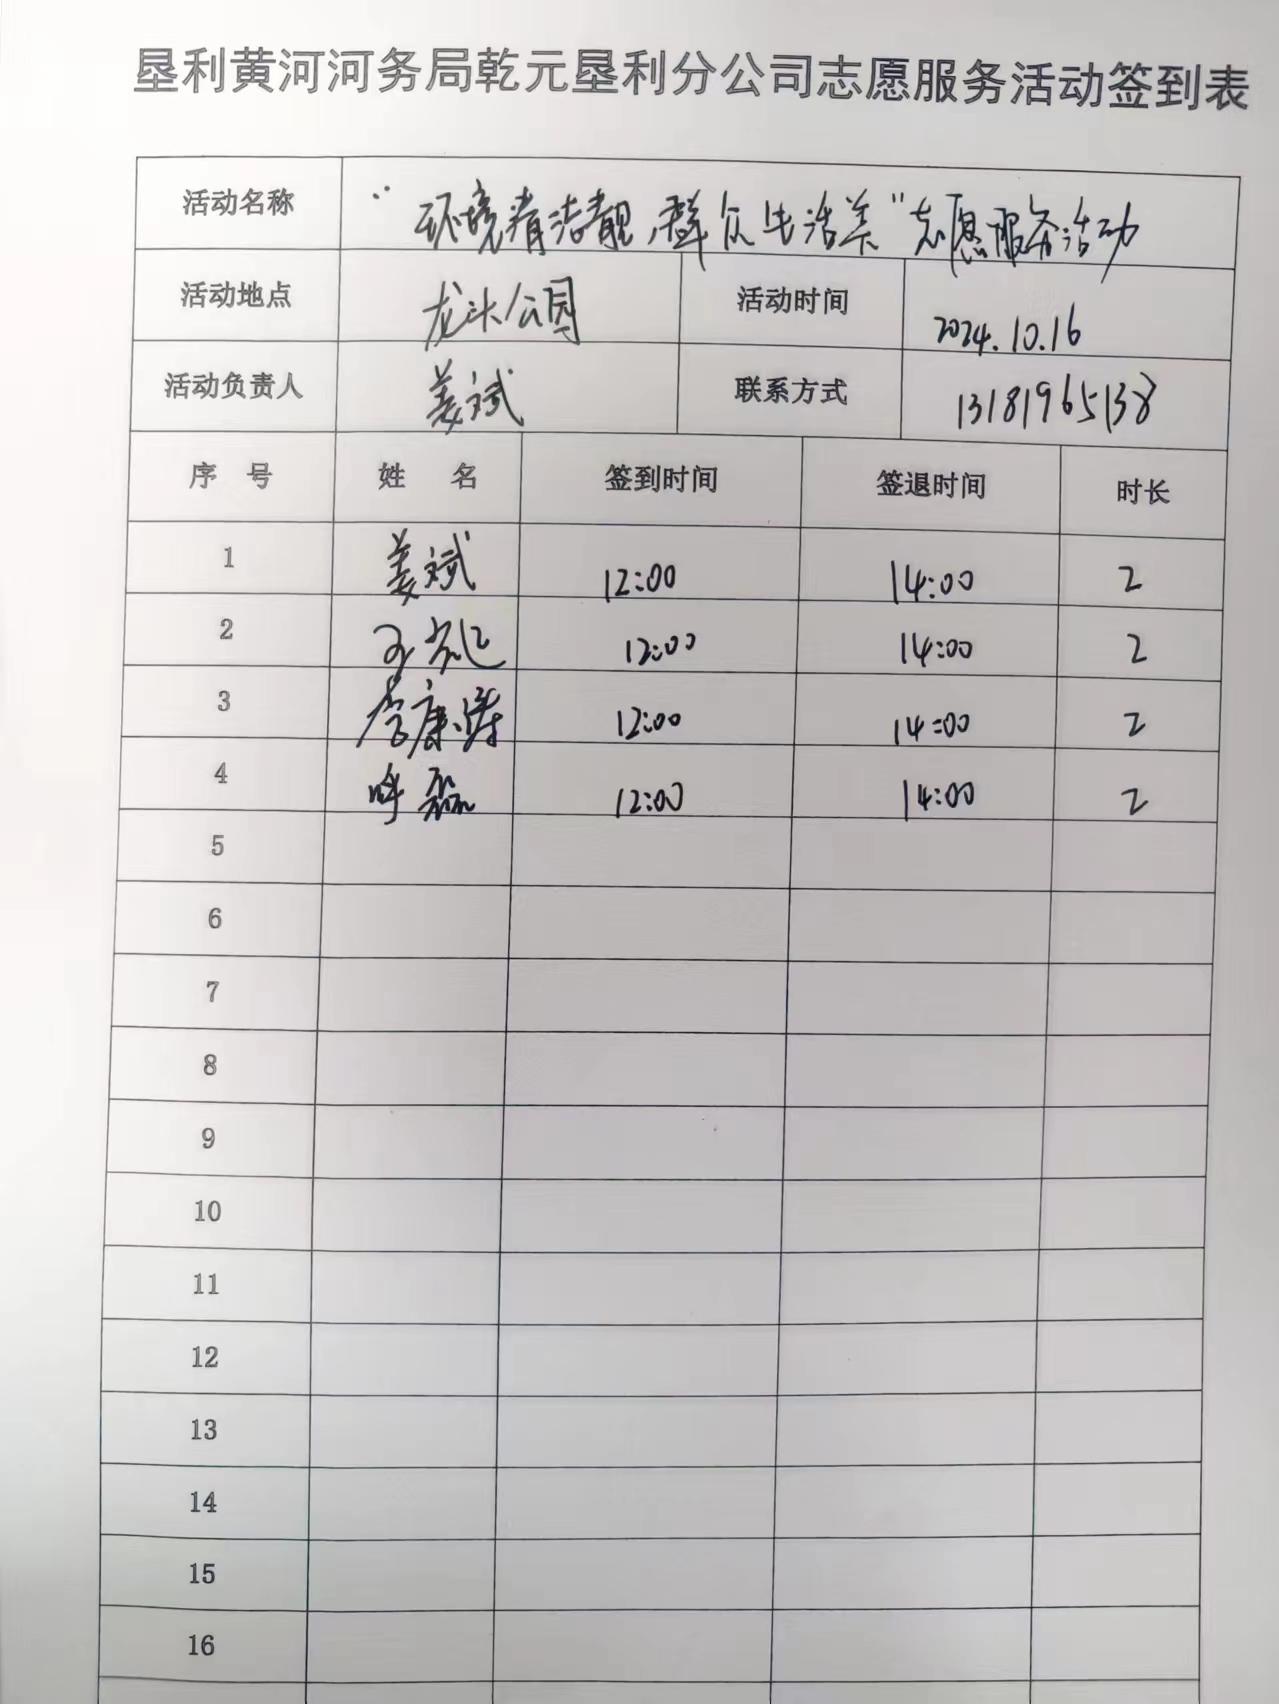 垦利黄河河务局乾元垦利分公司志愿服务活动签到表
活动名称 “环境清洁靓，群众生活美”志愿服务活动
活动地点 龙头公园 活动时间 2024.10.16
活动负责人 姜斌 联系方式 13181965138
序 号 姓 名 签到时间 签退时间 时长
1 姜斌 12:00 14:00 2
2 12:00 14:00 2
3 李康涛 12:00 14:00 2
4 呼磊 12:00 14:00 2
5
6
7
8
9
10
11
12
13
14
15
16